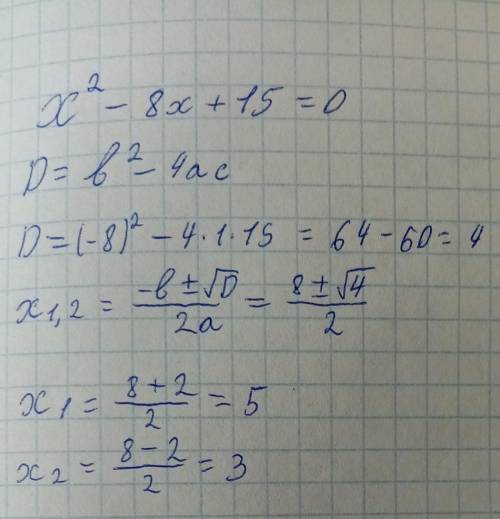 x² - 8x + 15 = 0
D = b² - 4ac
D = (-8)² - 4·1·15 = 64 - 60 = 4
x₁,₂ = (-b ± √D)/2a = (8 ± √4)/2
x₁ = (8 + 2)/2 = 5
x₂ = (8 - 2)/2 = 3